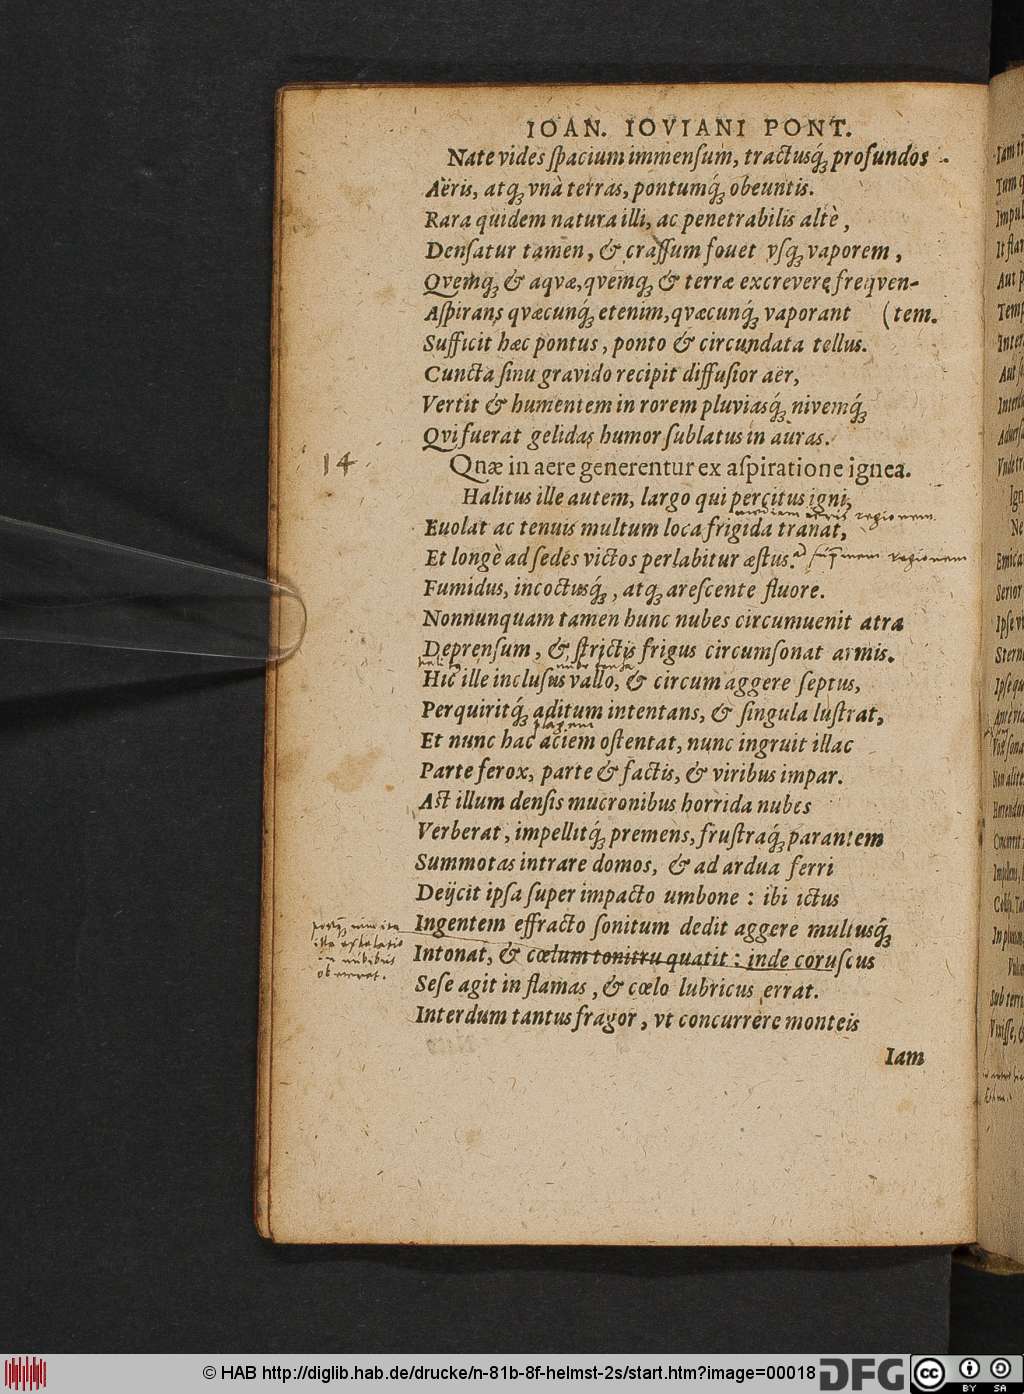 IOAN. IOVIANI PONT.
Nate vides ſpacium immenſum, tractusq́ꝫ profundos
Aëris, atqꝫ vnà terras, pontumq́ꝫ obeuntis.
Rara quidem natura illi, ac penetrabilis altè,
Denſatur tamen, & craſſum fouet vſqꝫ vaporem,
Qvemqꝫ & aqvæ, qvemqꝫ & terræ excrevere freqven-
Aſpirans qvæcunq́ꝫ etenim, qvæcunq́ꝫ vaporant (tem.
Sufficit hæc pontus, ponto & circundata tellus.
Cuncta ſinu gravido recipit diffuſior aër,
Vertit & humentem in rorem pluviasq́ꝫ nivemq́ꝫ
Qvi fuerat gelidas humor ſublatus in auras.
14
Qnæ in aere generentur ex aſpiratione ignea.
Halitus ille autem, largo qui percitus igni,
mediam aëris regionem
Euolat ac tenuis multum loca frigida tranat,
Et longè ad ſedes victos perlabitur æſtus.
regionem
Fumidus, incoctusq́ꝫ, atqꝫ areſcente fluore.
Nonnunquam tamen hunc nubes circumuenit atra
Deprenſum, & ſtrictis frigus circumſonat armis.
halitus
Hic ille incluſus vallo, & circum aggere ſeptus,
Perquiritq́ꝫ aditum intentans, & ſingula luſtrat,
Et nunc hac aciem oſtentat, nunc ingruit illac
Parte ferox, parte & factis, & viribus impar.
Aſt illum denſis mucronibus horrida nubes
Verberat, impellitq́ꝫ premens, fruſtraq́ꝫ parantem
Summotas intrare domos, & ad ardua ferri
Deijcit ipſa ſuper impacto umbone: ibi ictus
Ingentem effracto ſonitum dedit aggere multusq́ꝫ
Intonat, & cœlum tonitru quatit: inde coruſcus
in nubibus
Seſe agit in flamas, & cœlo lubricus errat.
Interdum tantus fragor, vt concurrere monteis
Iam
© HAB http://diglib.hab.de/drucke/n-81b-8f-helmst-2s/start.htm?image=00018
DFG
cc
BY SA